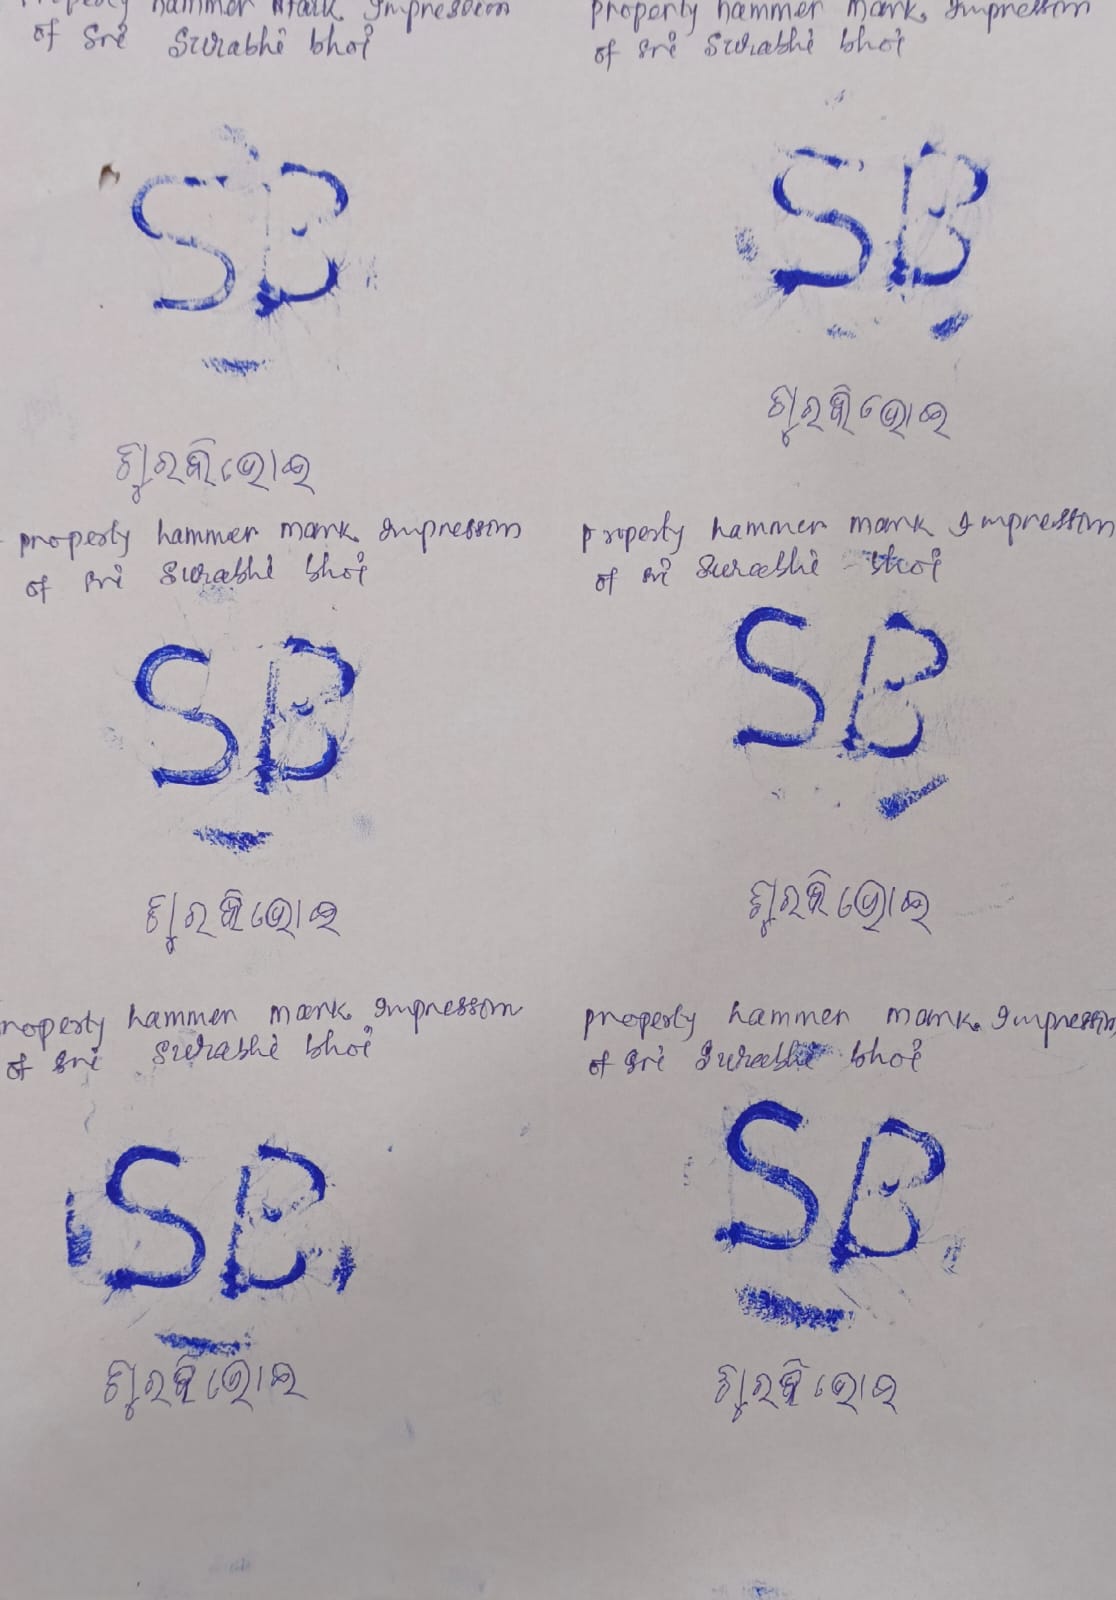 Property hammer Mark Impression
of Sri Surabhi bhoi
SB
ସୁରଭି ଭୋଇ
property hammer mark Impression
of Sri Surabhi bhoi
SB
ସୁରଭି ଭୋଇ
property hammer mark Impression
of Sri Surabhi bhoi
SB
ସୁରଭି ଭୋଇ
property hammer mark Impression
of Sri Surabhi bhoi
SB
ସୁରଭି ଭୋଇ
property hammer mark Impression
of Sri Surabhi bhoi
SB
ସୁରଭି ଭୋଇ
property hammer mark Impression
of Sri Surabhi bhoi
SB
ସୁରଭି ଭୋଇ